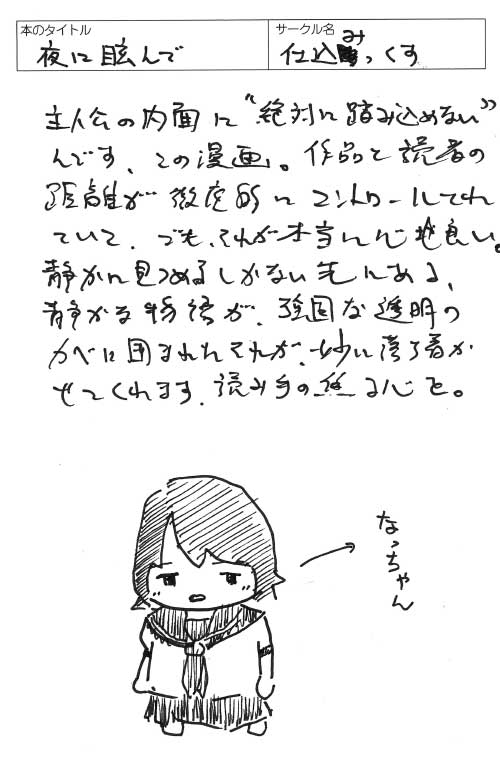 本のタイトル
夜に眩んで
サークル名
仕込みっくす
主人公の内面に“絶対に踏み込めない”
んです、この漫画。作品と読者の
距離が徹底的にコントロールされ
ていて、でも、それが本当に心地良い。
静かに見つめるしかない先にある、
静かな物語が、強固な透明の
カベに囲まれたそれが、妙に落ち着か
せてくれます、読み手の焦る心を。
なっちゃん